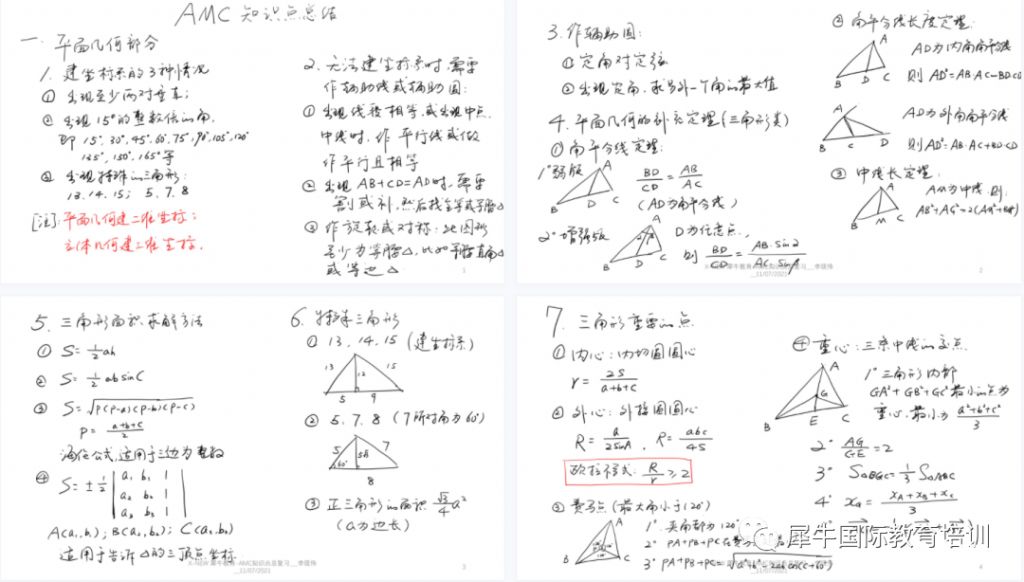 AMC 知识点总结
一. 平面几何部分
1. 建坐标系的3种情况
① 出现至少两对垂直;
② 出现15°的整数倍的角,
即 15°, 30°, 45°, 60°, 75°, 90°, 105°, 120°
135°, 150°, 165° 等
③ 出现特殊的三角形:
13. 14. 15; 5. 7. 8
[注]: 平面几何建二维坐标;
立体几何建三维坐标.
2. 无法建坐标系时, 需要
作辅助线或辅助圆:
① 出现线段相等, 或出现中点,
中线时, 作平行线或做
作平行且相等
② 出现 AB+CD=AD时, 需要
割或补, 然后找全等或等腰△
③ 作旋转或对称: 此图形
至少为等腰△, 比如等腰直角△
或等边△
1
3. 作辅助圆:
① 定角对定弦
② 出现定角, 求另外一个角的最大值
4. 平面几何的补充定理 (三角形类)
① 角平分线定理:
1° 弱版
A
B D C
BD/CD = AB/AC
(AD为角平分线)
2° 增强版
A
B D C
D为任意点,
则 BD/CD = AB·sin2/AC·sin1
② 角平分线长度定理:
A
B D C
AD为内角角平分线
则 AD²=AB·AC-BD·CD
A
B C D
AD为外角角平分线
则 AD²=AB·AC+BD·CD
③ 中线长定理:
A
B M C
AM为中线, 则:
AB²+AC²=2(AM²+BM²)
11/07/2021
2
5. 三角形面积求解方法
① S=½ah
② S=½absinC
③ S=√p(p-a)(p-b)(p-c)
P=(a+b+c)/2
海伦公式, 适用于三边为整数
④ S=±½ | a₁ b₁ 1 |
| a₂ b₂ 1 |
| a₃ b₃ 1 |
A(a₁,b₁); B(a₂,b₂); C(a₃,b₃)
适用于告诉△的三顶点坐标
6. 特殊三角形
① 13. 14. 15 (建坐标系)
13 12 15
5 9
② 5. 7. 8 (7所对角为60°)
5 7
60°
8
③ 正三角形的面积: √3/4 a²
(a为边长)
X-NEW 犀牛教育-AMC知识点总复习__李现伟
__11/07/2021
3
7. 三角形重要的点
① 内心: 内切圆圆心
r = 2S/(a+b+c)
② 外心: 外接圆圆心
R = a/2sinA, R = abc/4S
欧拉不等式: R/r ≥ 2
③ 费马点 (最大角小于120°)
A
B C
1° 夹角都为120°
2° PA+PB+PC
3° PA+PB+PC=
④ 重心: 三条中线的交点
A
G
B E C
1° 三角形内部
GA²+GB²+GC² 最小的点为
重心, 最小为 (a²+b²+c²)/3
2° AG/GE=2
3° S△BGC=⅓S△ABC
4° x_G = (x_A+x_B+x_C)/3
犀牛国际教育培训
11/07/2021
4